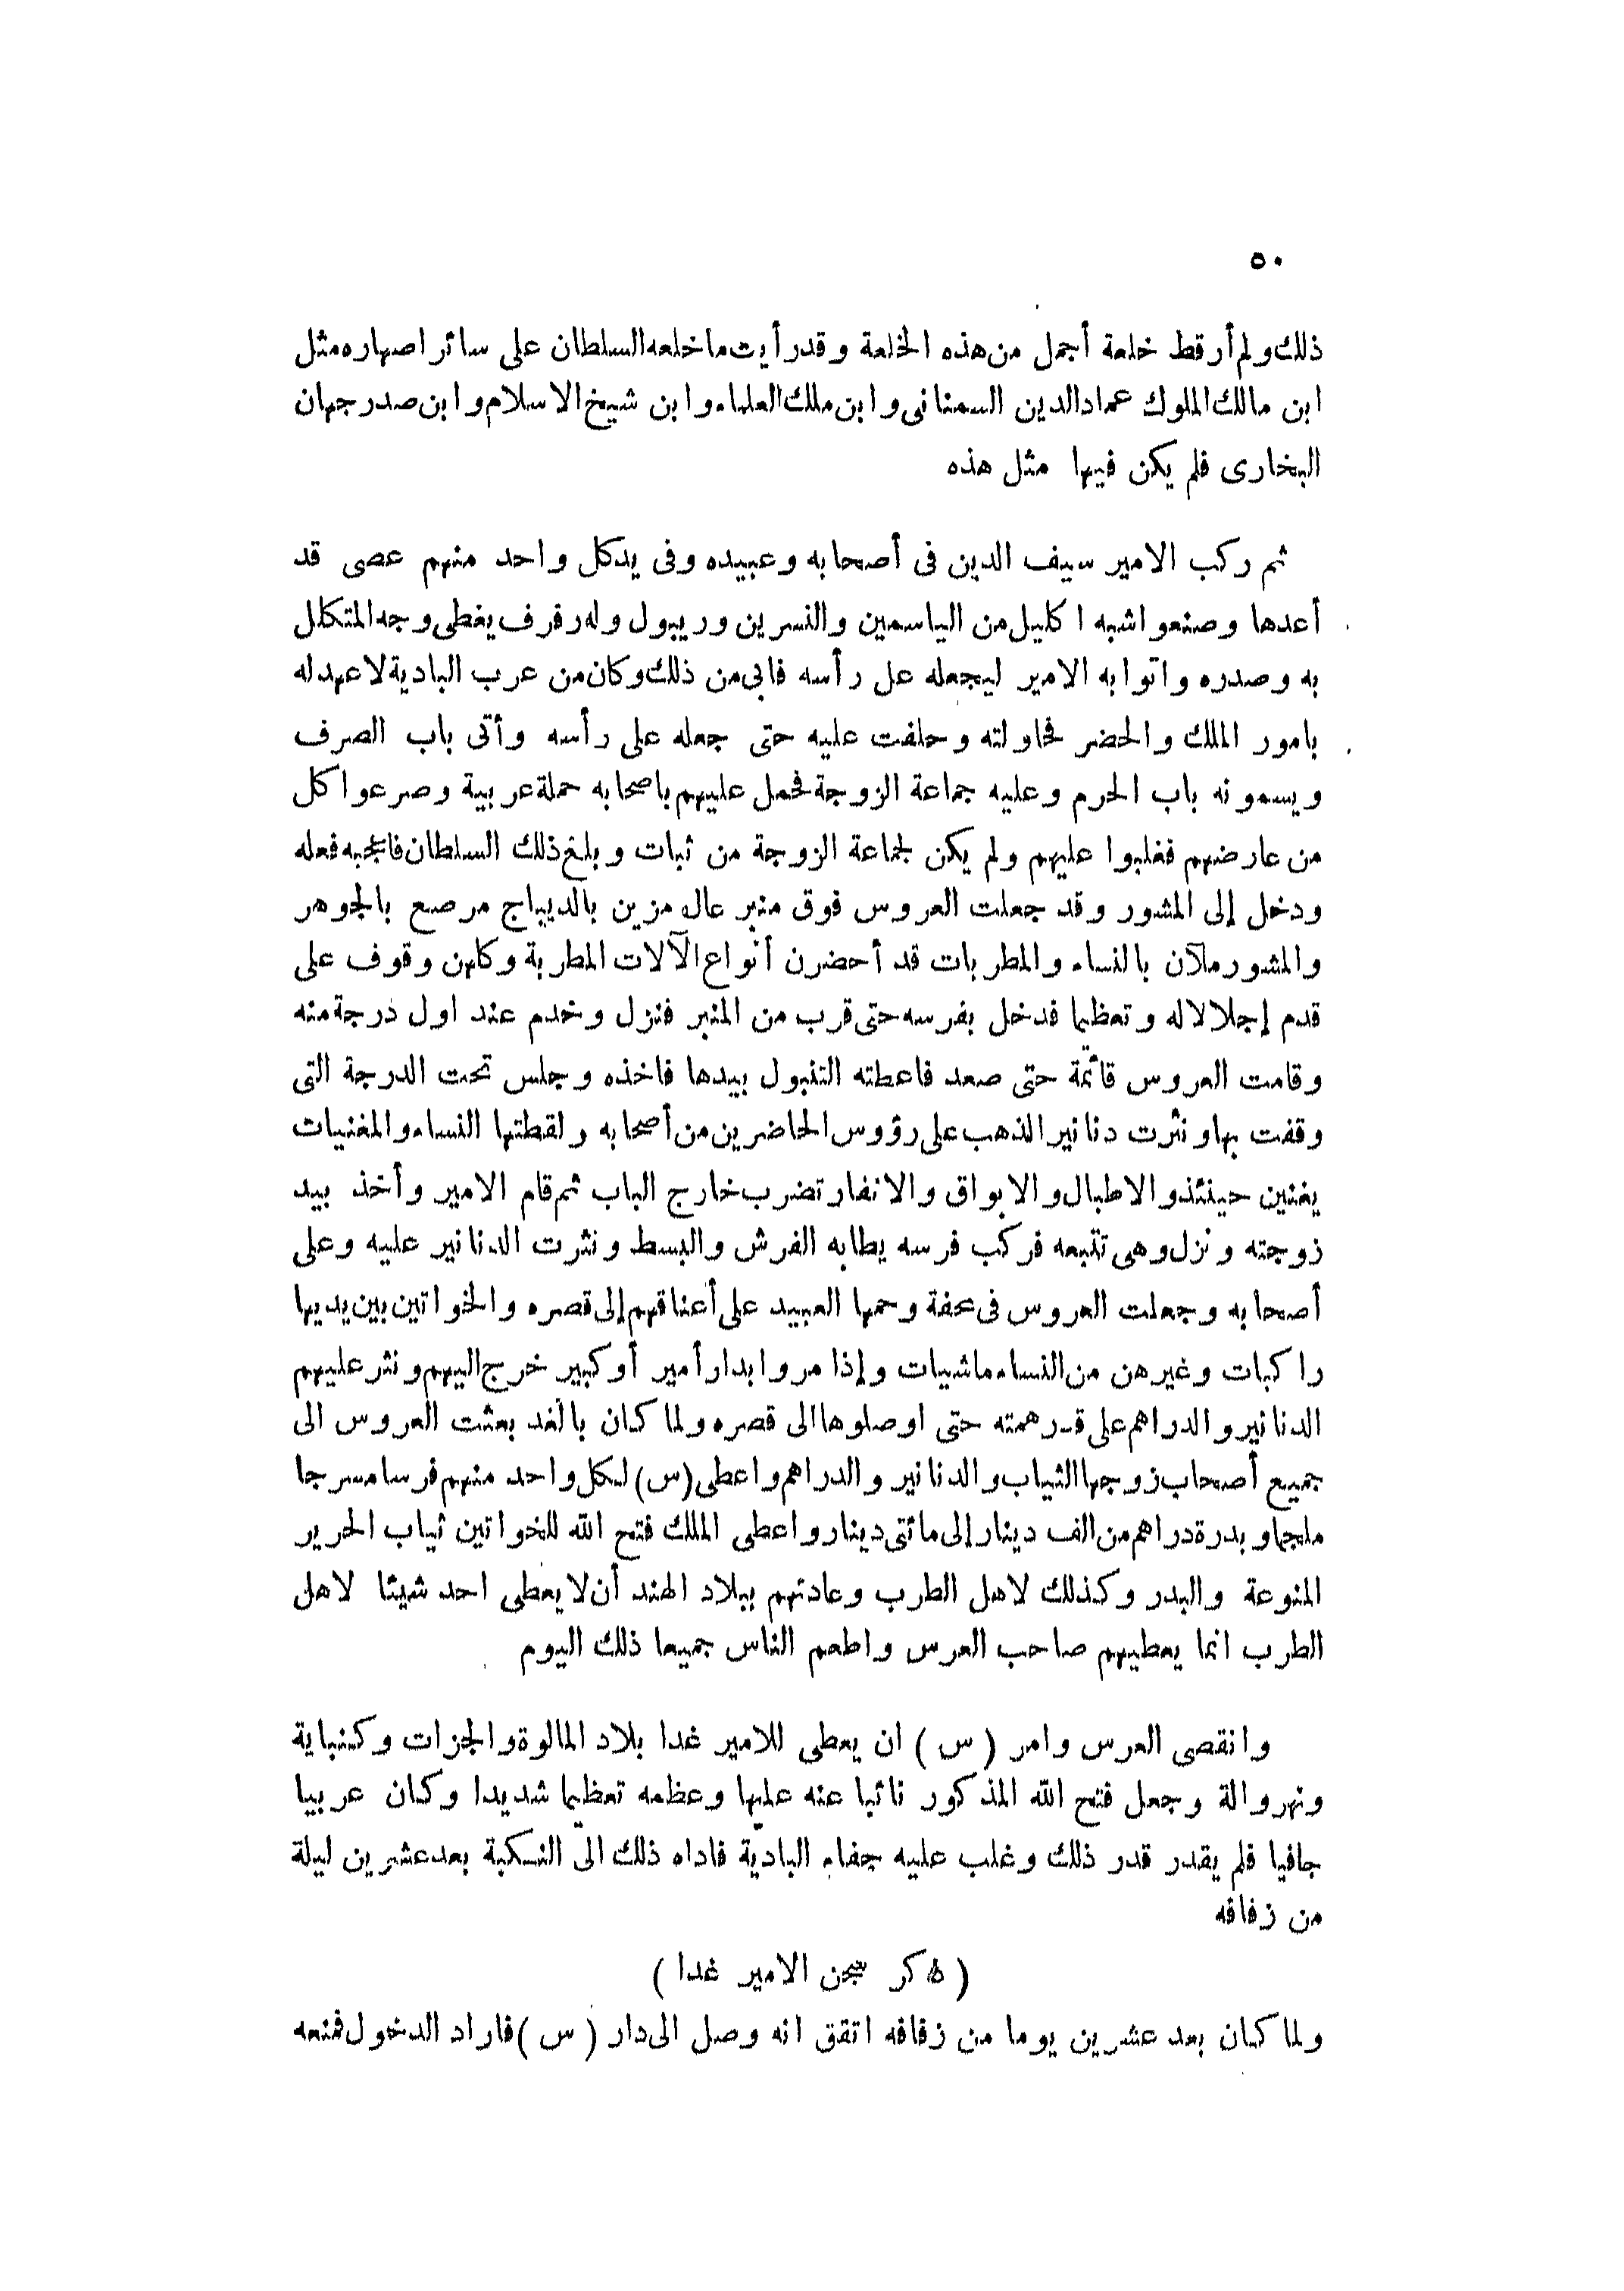 ٥٠
ذلك ولم أر قط خلعة أجمل من هذه الخلعة وقد رأيت ما خلعه السلطان على سائر اصهاره مثل
ابن مالك الملوك عماد الدين السمناني وابن ملك العلماء وابن شيخ الاسلام وابن صدر جهان
البخارى فلم يكن فيها مثل هذه
ثم ركب الامير سيف الدين فى أصحابه وعبيده وفى يد كل واحد منهم عصى قد
أعدها وصنعوا شبه اكليل من الياسمين والنسرين وريبول وله رفرف يغطى وجه المتكلل
به وصدره واتوا به الامير ليجعله عل رأسه فابى من ذلك وكان من عرب البادية لا عهد له
بامور الملك والحضر فحاولته وحلفت عليه حتى جعله على رأسه وأتى باب الصرف
ويسمونه باب الحرم وعليه جماعة الزوجة فحمل عليهم باصحابه حملة عربية وصرعوا كل
من عارضهم فغلبوا عليهم ولم يكن لجماعة الزوجة من ثبات وبلغ ذلك السلطان فاعجبه فعله
ودخل إلى المشور وقد جعلت العروس فوق منبر عال مزين بالديباج مرصع بالجوهر
والمشور ملآن بالنساء والمطربات قد أحضرن أنواع الآلات المطربة وكلهن وقوف على
قدم إجلالا له وتعظيما فدخل بفرسه حتى قرب من المنبر فنزل وخدم عند اول درجة منه
وقامت العروس قائمة حتى صعد فاعطته التنبول بيدها فاخذه وجلس تحت الدرجة التى
وقفت بها ونثرت دنانير الذهب على رؤوس الحاضرين من أصحابه ولقطتها النساء والمغنيات
يغنين حينئذ والاطبال والابواق والانفار تضرب خارج الباب ثم قام الامير وأخذ بيد
زوجته ونزل وهى تتبعه فركب فرسه يطا به الفرش والبسط ونثرت الدنانير عليه وعلى
أصحابه وجعلت العروس فى محفة وحملها العبيد على أعناقهم إلى قصره والخواتين بين يديها
راكبات وغيرهن من النساء ماشيات وإذا مروا بدار أمير أو كبير خرج اليهم ونثر عليهم
الدنانير والدراهم على قدر همته حتى اوصلوها الى قصره ولما كان بالغد بعثت العروس الى
جميع أصحاب زوجها الثياب والدنانير والدراهم واعطى (س) لكل واحد منهم فرسا مسرجا
ملجما وبدرة دراهم من الف دينار إلى مائتى دينار واعطى الملك فتح الله للخواتين ثياب الحرير
المنوعة والبدر وكذلك لاهل الطرب وعادتهم ببلاد الهند أن لا يعطى احد شيئا لاهل
الطرب انما يعطيهم صاحب العرس واطعم الناس جميعا ذلك اليوم
وانقصى العرس وامر (س) ان يعطى للامير غدا بلاد المالوة والجزات وكنباية
ونهروالة وجعل فتح الله المذكور نائبا عنه عليها وعظمه تعظيما شديدا وكان عربيا
جافيا فلم يقدر قدر ذلك وغلب عليه جفاء البادية فاداه ذلك الى النكبة بعد عشرين ليلة
من زفافه
(ذكر سجن الامير غدا)
ولما كان بعد عشرين يوما من زفافه اتقق انه وصل الى دار (س) فاراد الدخول فمنعه